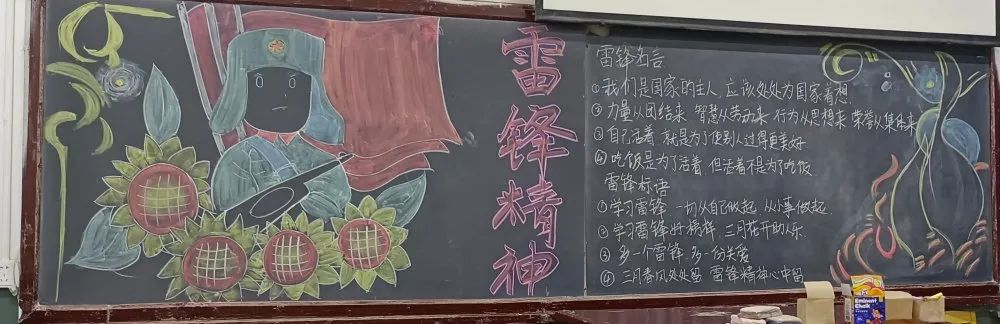 雷锋精神
雷锋名言
①我们是国家的主人,应该处处方国家着想.
②力量从团结来,智慧从劳动来,行为从思想来,荣誉从集体来
③自己活着,就是为了使别人过得更美好
④吃饭是为了活着,但活着不是为了吃饭
雷锋标语
①学习雷锋,一切从自己做起,从小事做起.
②学习雷锋好榜样,三月花开助人乐.
③多一个雷锋,多一份关爱
④三月春风处处留,雷锋精神心中留
Eminent
Chalk